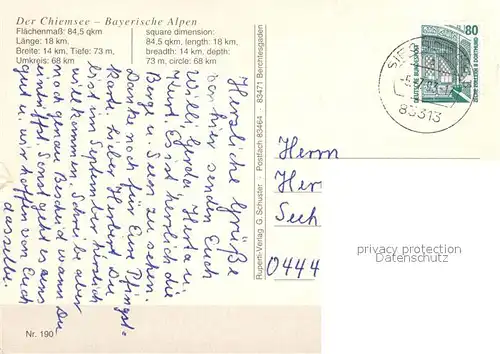 Der Chiemsee – Bayerische Alpen
Flächenmaß: 84,5 qkm
Länge: 18 km,
Breite: 14 km, Tiefe: 73 m,
Umkreis: 68 km
square dimension:
84,5 qkm, length: 18 km,
breadth: 14 km, depth:
73 m, circle: 68 km
Herzliche Grüße
von hier senden Euch
Willi, Gerda, Herta u.
Kurt. Es ist herrlich die
Berge u. Seen zu sehen.
Danke noch für Eure Pfingst-
karte. Lieber Herbert Du
bist im September herzlich
willkommen. Schreibe aber
noch genau Bescheid wann Du
eintriffst. Sonst geht es uns
gut u. wir hoffen von Euch
dasselbe.
Ruperti-Verlag G. Schuster · Postfach 83464 · 83471 Berchtesgaden
Nr. 190
80
DEUTSCHE BUNDESPOST
ZECHE ZOLLERN II DORTMUND
83313
Herrn
Her
Sech
0444
privacy protection
Datenschutz